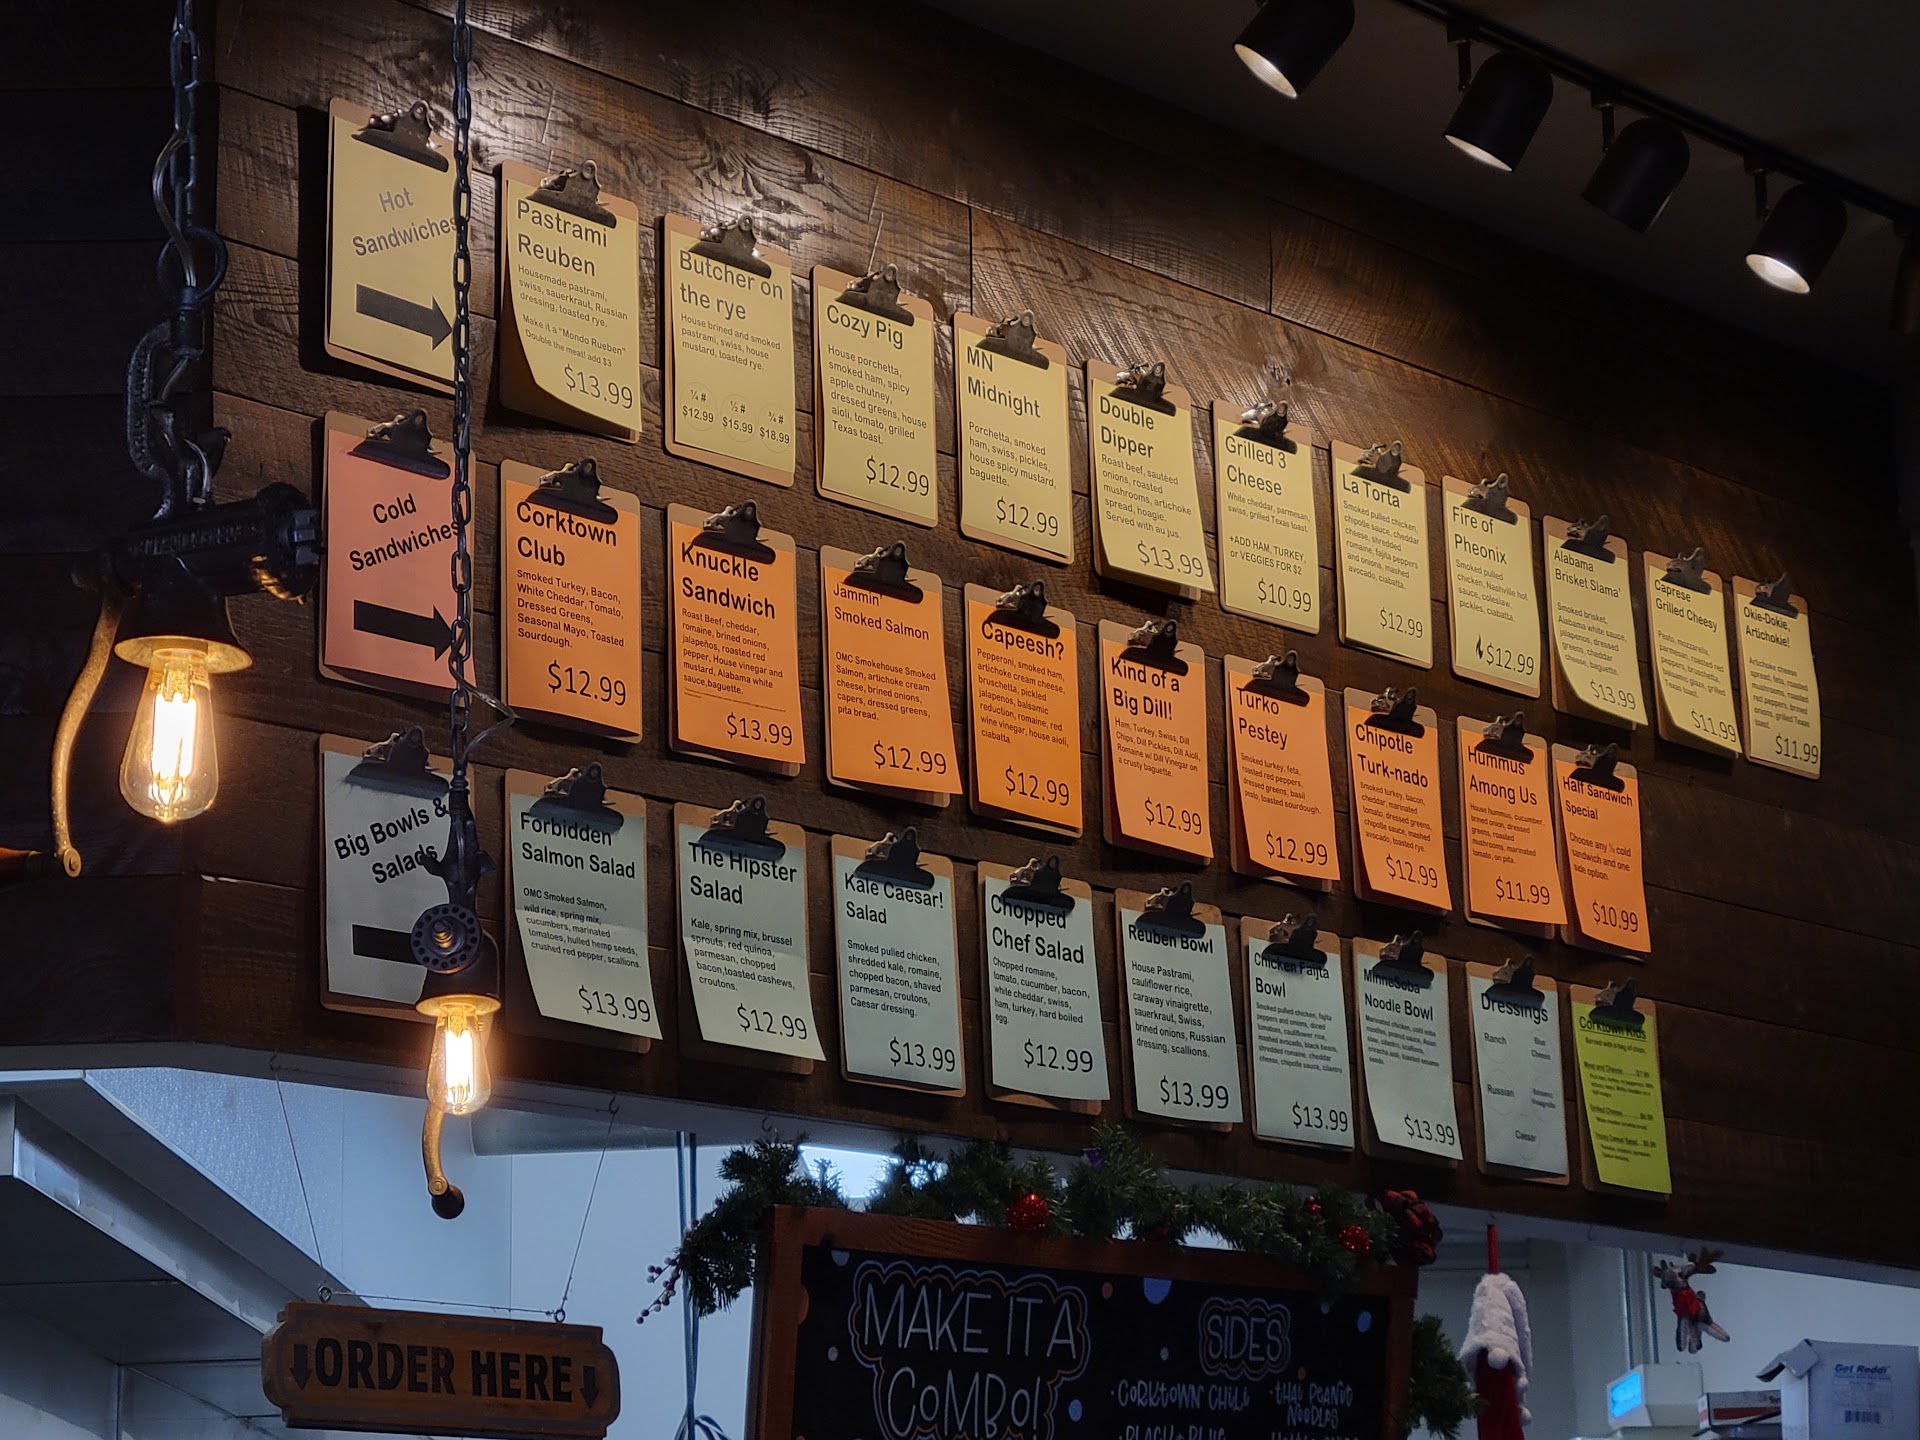 Hot
Sandwiches
Pastrami
Reuben
Housemade pastrami,
swiss, sauerkraut, Russian
dressing, toasted rye.
Make it a "Mondo Rueben"
Double the meat! add $3
$13.99
Butcher on
the rye
House brined and smoked
pastrami, swiss, house
mustard, toasted rye.
¼ # ½ # ¾ #
$12.99 $15.99 $18.99
Cozy Pig
House porchetta,
smoked ham, spicy
apple chutney,
dressed greens, house
aioli, tomato, grilled
Texas toast.
$12.99
MN
Midnight
Porchetta, smoked
ham, swiss, pickles,
house spicy mustard,
baguette.
$12.99
Double
Dipper
Roast beef, sautéed
onions, roasted
mushrooms, artichoke
spread, hoagie.
Served with au jus.
$13.99
Grilled 3
Cheese
White cheddar, parmesan,
swiss, grilled Texas toast.
+ADD HAM, TURKEY,
or VEGGIES FOR $2
$10.99
La Torta
Smoked pulled chicken,
chipotle sauce, cheddar
cheese, shredded
romaine, fajita peppers
and onions, mashed
avocado, ciabatta.
$12.99
Fire of
Pheonix
Smoked pulled
chicken, Nashville hot
sauce, coleslaw,
pickles, ciabatta.
$12.99
Alabama
Brisket Slama'
Smoked brisket,
Alabama white sauce,
jalapeños, dressed
greens, cheddar
cheese, baguette.
$13.99
Caprese
Grilled Cheesy
Pesto, mozzarella,
parmesan, roasted red
peppers, bruschetta,
balsamic glaze, grilled
Texas toast.
$11.99
Okie-Dokie,
Artichokie!
Artichoke cheese
spread, feta, roasted
mushrooms, roasted
red peppers, brined
onions, grilled Texas
toast.
$11.99
Cold
Sandwiches
Corktown
Club
Smoked Turkey, Bacon,
White Cheddar, Tomato,
Dressed Greens,
Seasonal Mayo, Toasted
Sourdough.
$12.99
Knuckle
Sandwich
Roast Beef, cheddar,
romaine, brined onions,
jalapeños, roasted red
pepper, House vinegar and
mustard, Alabama white
sauce,baguette.
$13.99
Jammin'
Smoked Salmon
OMC Smokehouse Smoked
Salmon, artichoke cream
cheese, brined onions,
capers, dressed greens,
pita bread.
$12.99
Capeesh?
Pepperoni, smoked ham,
artichoke cream cheese,
bruschetta, pickled
jalapenos, balsamic
reduction, romaine, red
wine vinegar, house aioli,
ciabatta.
$12.99
Kind of a
Big Dill!
Ham, Turkey, Swiss, Dill
Chips, Dill Pickles, Dill Aioli,
Romaine w/ Dill Vinegar on
a crusty baguette.
$12.99
Turko
Pestey
Smoked turkey, feta,
roasted red peppers,
dressed greens, basil
pesto, toasted sourdough.
$12.99
Chipotle
Turk-nado
Smoked turkey, bacon,
cheddar, marinated
tomato, dressed greens,
chipotle sauce, mashed
avocado, toasted rye.
$12.99
Hummus
Among Us
House hummus, cucumber,
brined onion, dressed
greens, roasted
mushrooms, marinated
tomato, on pita.
$11.99
Half Sandwich
Special
Choose any ½ cold
sandwich and one
side option.
$10.99
Big Bowls &
Salads
Forbidden
Salmon Salad
OMC Smoked Salmon,
wild rice, spring mix,
cucumbers, marinated
tomatoes, hulled hemp seeds,
crushed red pepper, scallions.
$13.99
The Hipster
Salad
Kale, spring mix, brussel
sprouts, red quinoa,
parmesan, chopped
bacon,toasted cashews,
croutons.
$12.99
Kale Caesar!
Salad
Smoked pulled chicken,
shredded kale, romaine,
chopped bacon, shaved
parmesan, croutons,
Caesar dressing.
$13.99
Chopped
Chef Salad
Chopped romaine,
tomato, cucumber, bacon,
white cheddar, swiss,
ham, turkey, hard boiled
egg.
$12.99
Reuben Bowl
House Pastrami,
cauliflower rice,
caraway vinaigrette,
sauerkraut, Swiss,
brined onions, Russian
dressing, scallions.
$13.99
Chicken Fajita
Bowl
Smoked pulled chicken, fajita
peppers and onions, diced
tomatoes, cauliflower rice,
mashed avocado, black beans,
shredded romaine, cheddar
cheese, chipotle sauce, cilantro
$13.99
MinneSoba
Noodle Bowl
Marinated chicken, cold soba
noodles, peanut sauce, Asian
slaw, cilantro, scallions,
sriracha aioli, toasted sesame
seeds.
$13.99
Dressings
Ranch Blue
Cheese
Russian Balsamic
Vinaigrette
Caesar
Corktown Kids
Served with a bag of chips.
ORDER HERE
MAKE IT A
COMBO!
SIDES
CORKTOWN CHILI
THAI PEANUT
NOODLES
Got Reddi